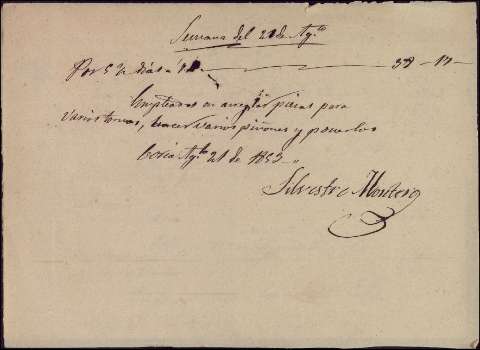 Semana del 21 de Agto
Por 5 ½ dias a
Empleados en arreglar piezas para
varios tornos, hacer varios piñones y ponerlos
Coria Agto 21 de 1853.
Silvestre Montero